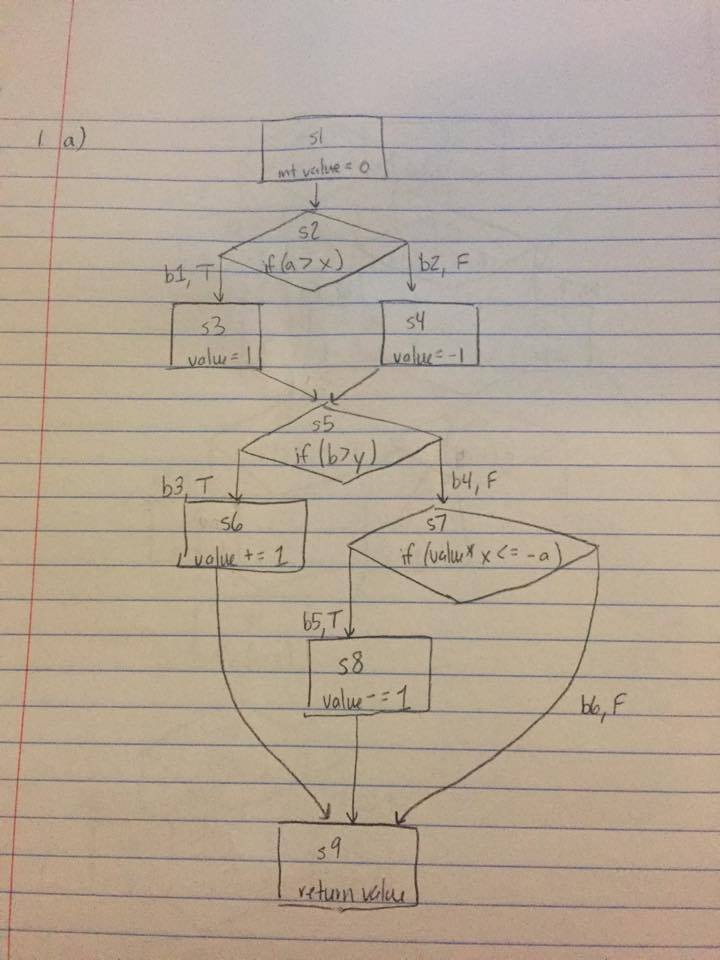 1 a)
s1
int value = 0
s2
if (a > x)
b1, T
b2, F
s3
value = 1
s4
value = -1
s5
if (b > y)
b3, T
b4, F
s6
value += 1
s7
if (value * x <= -a)
b5, T
s8
value -= 1
b6, F
s9
return value